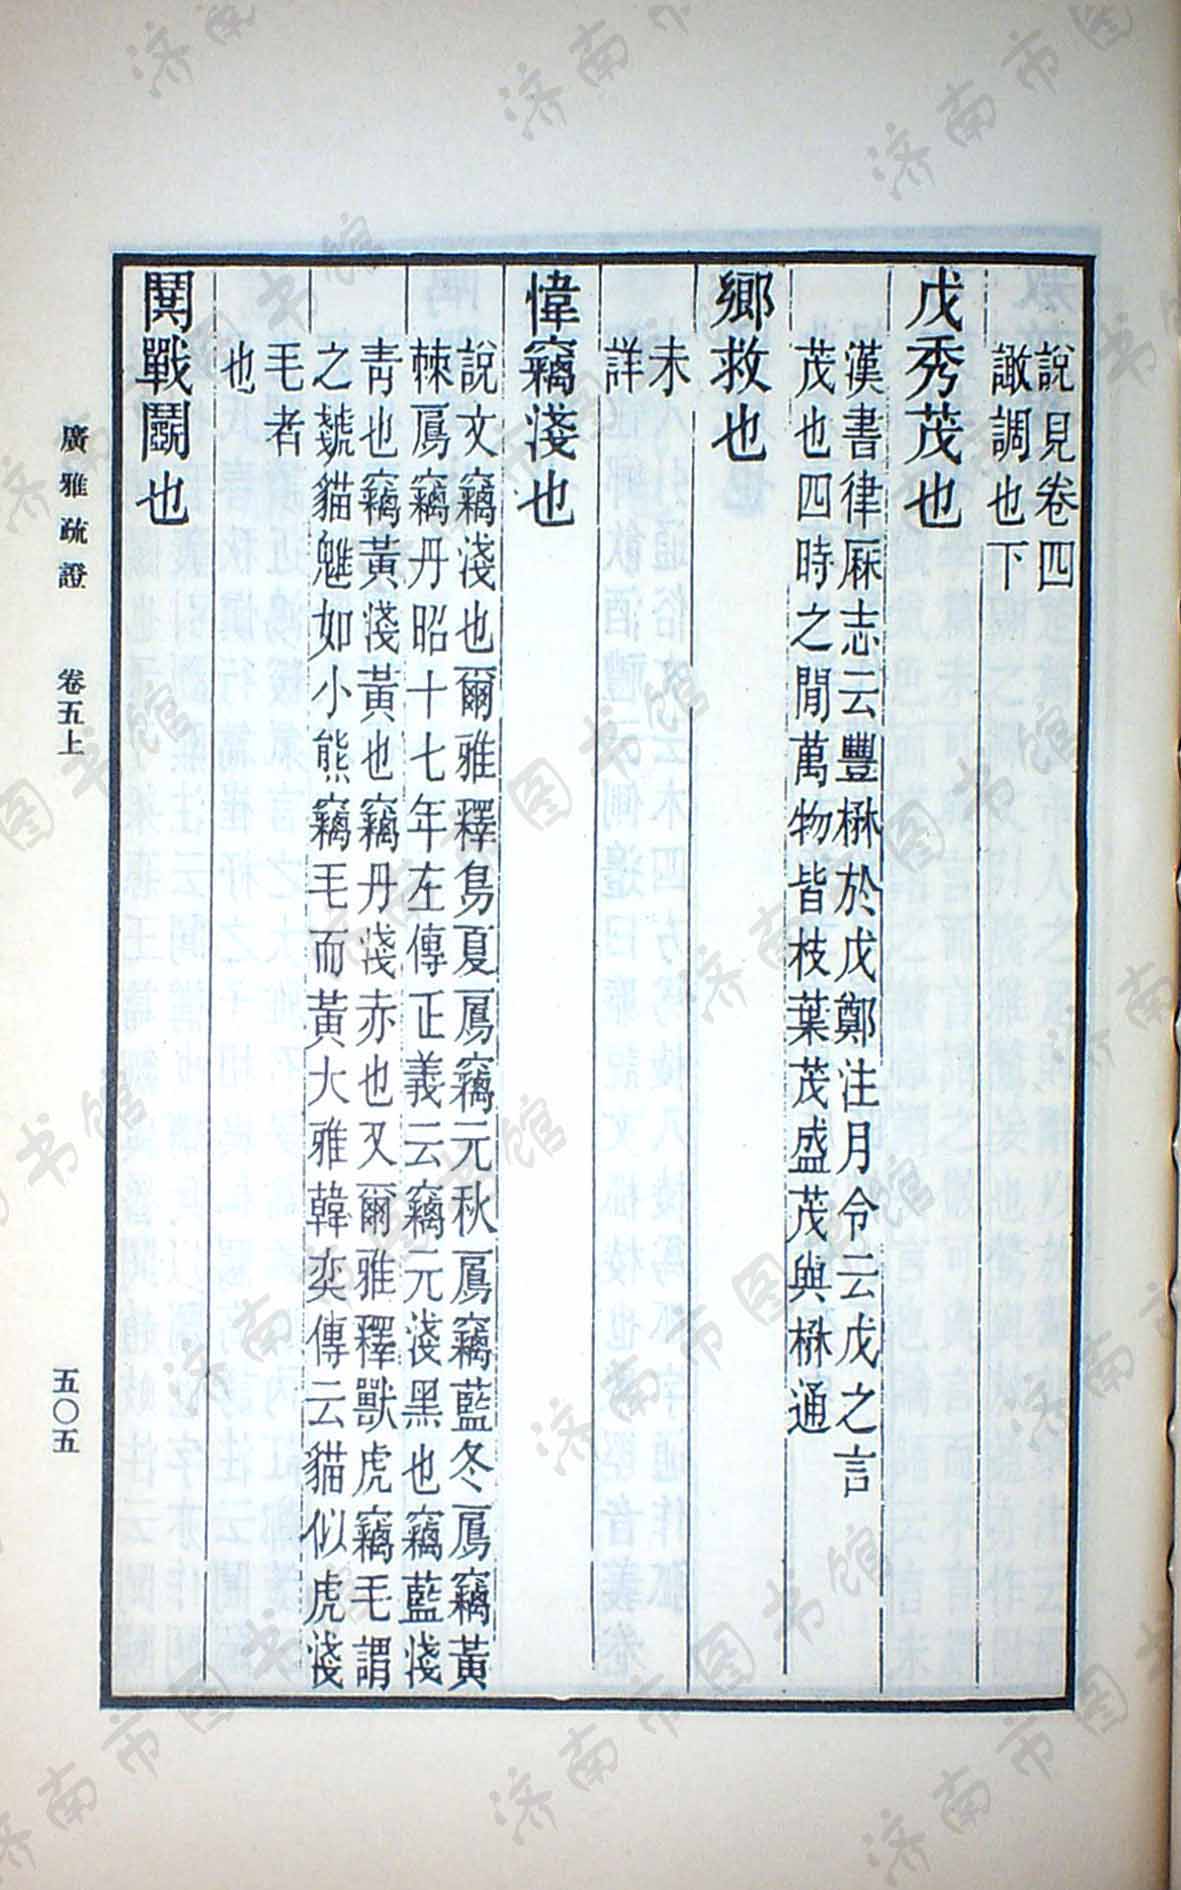 說見卷四
譀調也下
戊秀茂也
漢書律厤志云豐楙於戊鄭注月令云戊之言
茂也四時之閒萬物皆枝葉茂盛茂與楙通
鄉救也
未
詳
愇竊淺也
說文竊淺也爾雅釋鳥夏鳸竊元秋鳸竊藍冬鳸竊黃
棘鳸竊丹昭十七年左傳正義云竊元淺黑也竊藍淺
靑也竊黃淺黃也竊丹淺赤也又爾雅釋獸虎竊毛謂
之虦貓魋如小熊竊毛而黃大雅韓奕傳云貓似虎淺
毛者
也
鬨戰鬭也
廣雅疏證 卷五上
五〇五
济南市图书馆